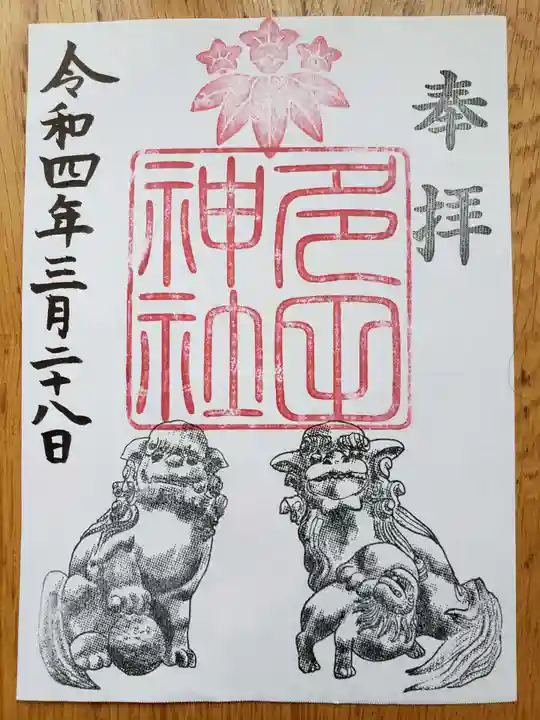 奉拝
神社
令和四年三月二十八日